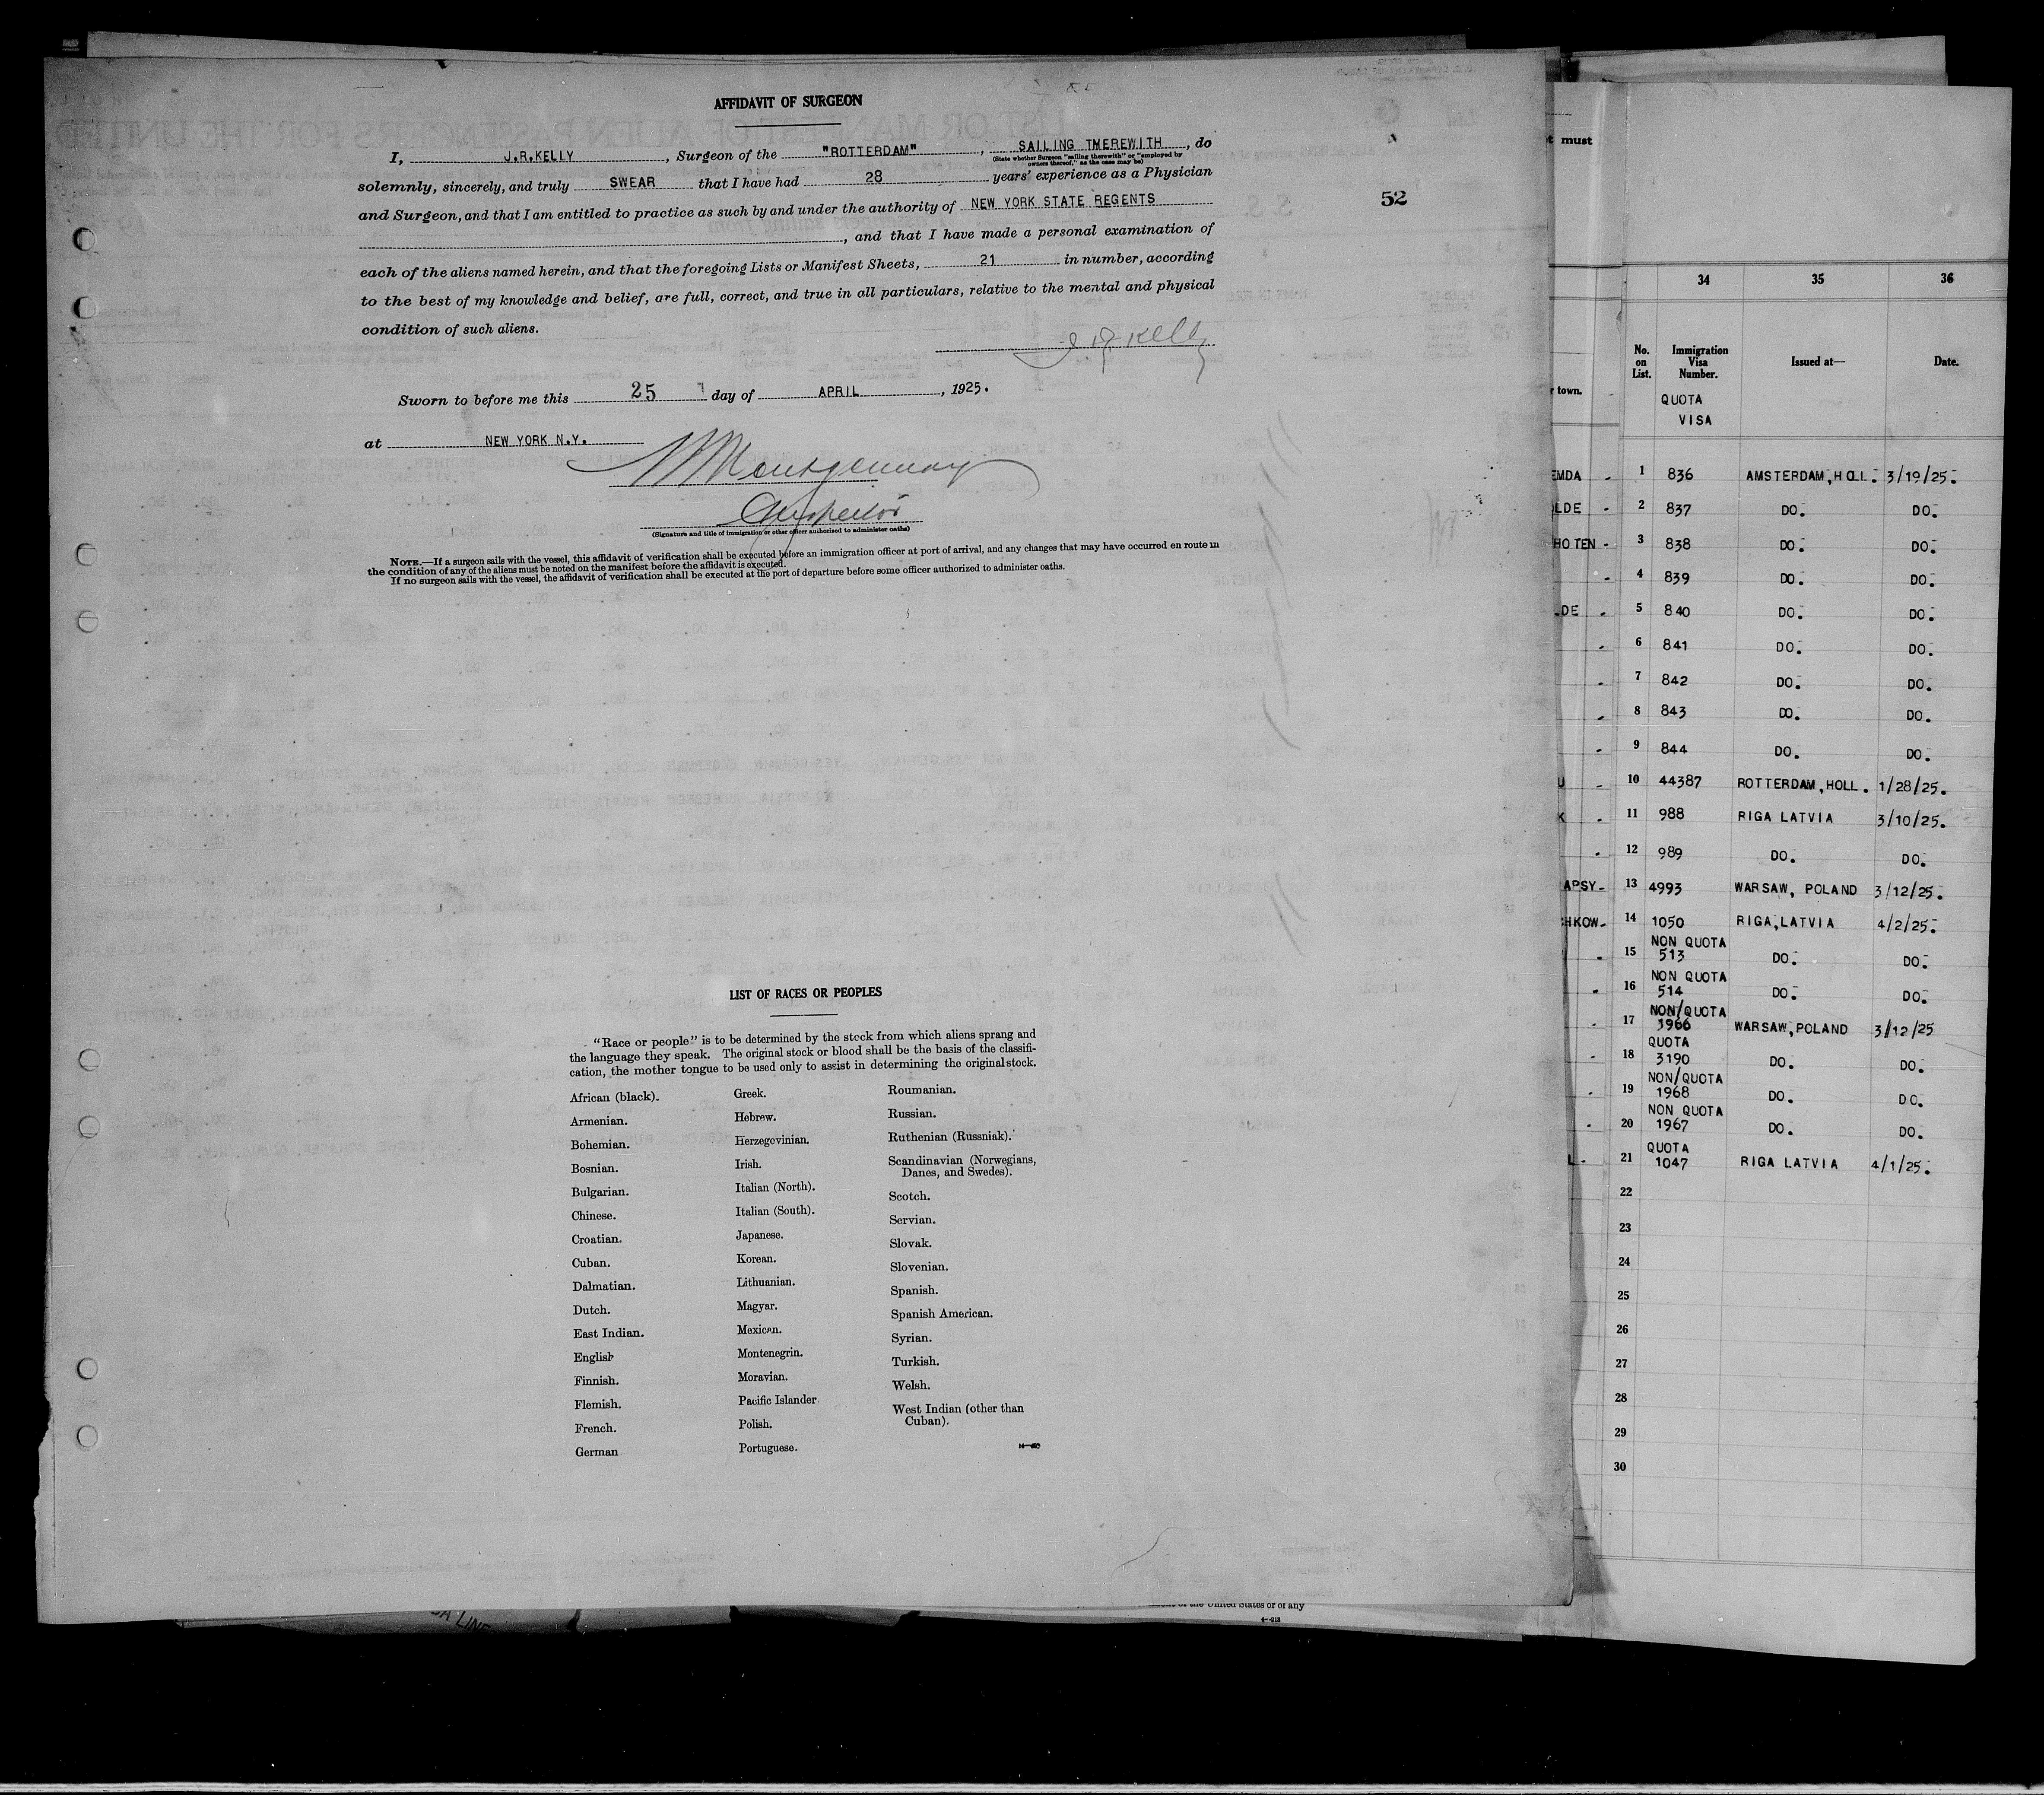 AFFIDAVIT OF SURGEON
I, J.R.KELLY, Surgeon of the "ROTTERDAM", SAILING THEREWITH, do
(State whether Surgeon "sailing therewith" or "employed by
owners thereof," as the case may be)
solemnly, sincerely, and truly SWEAR that I have had 28 years' experience as a Physician
and Surgeon, and that I am entitled to practice as such by and under the authority of NEW YORK STATE REGENTS
, and that I have made a personal examination of
each of the aliens named herein, and that the foregoing Lists or Manifest Sheets, 21 in number, according
to the best of my knowledge and belief, are full, correct, and true in all particulars, relative to the mental and physical
condition of such aliens.
J R Kelly
Sworn to before me this 25 day of APRIL, 1925.
at NEW YORK N.Y.
Montgomery
Inspector
(Signature and title of immigration or other officer authorized to administer oaths)
NOTE.—If a surgeon sails with the vessel, this affidavit of verification shall be executed before an immigration officer at port of arrival, and any changes that may have occurred en route in
the condition of any of the aliens must be noted on the manifest before the affidavit is executed.
If no surgeon sails with the vessel, the affidavit of verification shall be executed at the port of departure before some officer authorized to administer oaths.
52
LIST OF RACES OR PEOPLES
"Race or people" is to be determined by the stock from which aliens sprang and
the language they speak. The original stock or blood shall be the basis of the classifi-
cation, the mother tongue to be used only to assist in determining the original stock.
African (black).
Armenian.
Bohemian.
Bosnian.
Bulgarian.
Chinese.
Croatian.
Cuban.
Dalmatian.
Dutch.
East Indian.
English
Finnish.
Flemish.
French.
German
Greek.
Hebrew.
Herzegovinian.
Irish.
Italian (North).
Italian (South).
Japanese.
Korean.
Lithuanian.
Magyar.
Mexican.
Montenegrin.
Moravian.
Pacific Islander
Polish.
Portuguese.
Roumanian.
Russian.
Ruthenian (Russniak).
Scandinavian (Norwegians,
Danes, and Swedes).
Scotch.
Servian.
Slovak.
Slovenian.
Spanish.
Spanish American.
Syrian.
Turkish.
Welsh.
West Indian (other than
Cuban).
must
34 35 36
No.
on
List.
Immigration
Visa
Number.
Issued at—
Date.
town.
QUOTA
VISA
EMDA - 1 836 AMSTERDAM, HOLL. 3/19/25.
LDE - 2 837 DO. DO.
HOTEN - 3 838 DO. DO.
- 4 839 DO. DO.
DE - 5 840 DO. DO.
- 6 841 DO. DO.
- 7 842 DO. DO.
- 8 843 DO. DO.
- 9 844 DO. DO.
U - 10 44387 ROTTERDAM, HOLL. 1/28/25.
K - 11 988 RIGA LATVIA 3/10/25.
- 12 989 DO. DO.
APSY- 13 4993 WARSAW, POLAND 3/12/25.
HKOW- 14 1050 RIGA, LATVIA 4/2/25.
NON QUOTA
- 15 513 DO. DO.
NON QUOTA
- 16 514 DO. DO.
NON/QUOTA
- 17 1966 WARSAW, POLAND 3/12/25
QUOTA
- 18 3190 DO. DO.
NON/QUOTA
- 19 1968 DO. DO.
NON QUOTA
- 20 1967 DO. DO.
QUOTA
L- 21 1047 RIGA LATVIA 4/1/25.
22
23
24
25
26
27
28
29
30
of the United States or of any
LINE